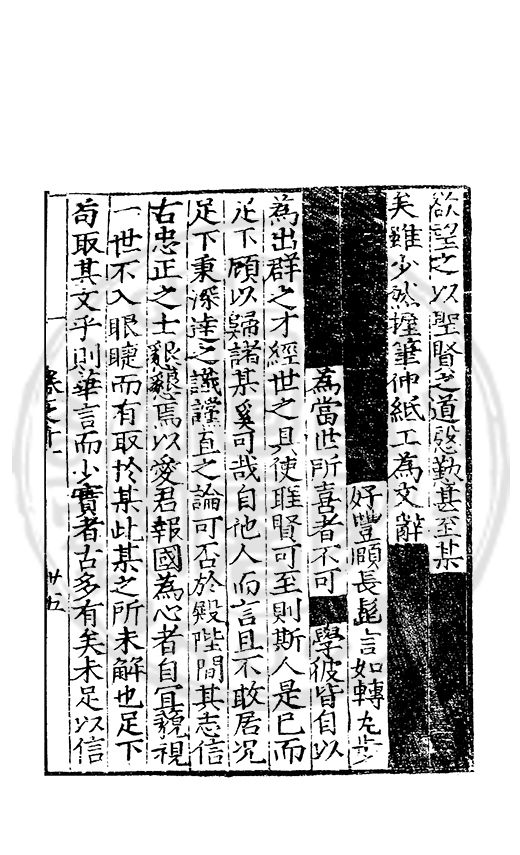 欲望之以聖賢之道慇勤甚至某
矣雖少然握筆伸紙工為文辭
好豐頤長髭言如轉丸步
為當世所喜者不可 學彼皆自以
為出群之才經世之具使聖賢可至則斯人是已而
足下顧以歸諸某奚可哉自他人而言且不敢居况
足下秉深達之識謹直之論可否於殿陛間其志信
右忠正之士懇懇焉以愛君報國為心者自宜藐視
一世不入眼睫而有取扵某此某之所未解也足下
苟取其文乎則華言而少實者古多有矣未足以信
卷之十一
卅五